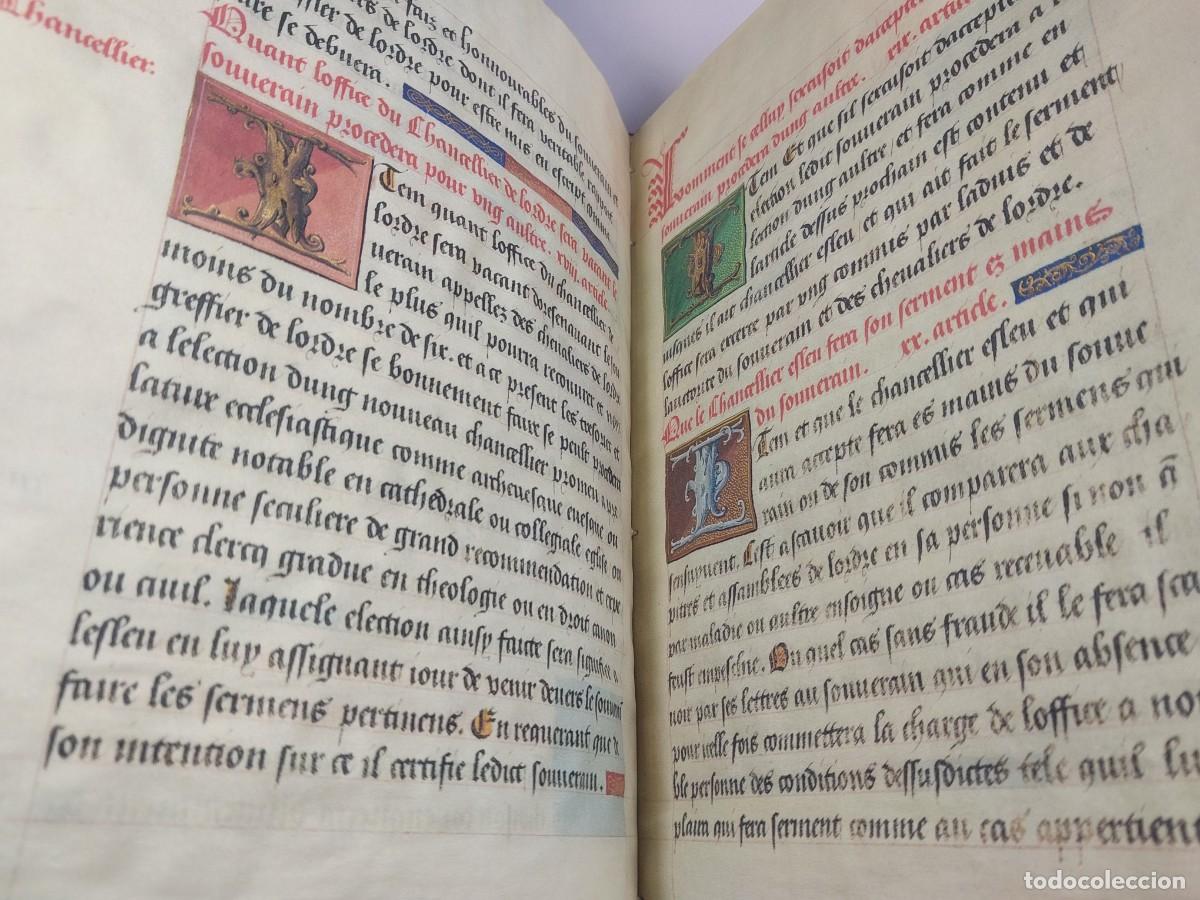 Chancellier.
faiz et honnourables du souuerain
de lordre dont il fera veritable rapport
de lordre pour estre mis en escript
se debuera.
Quant loffice du Chancellier de lordre sera vacant le
souuerain procedera pour vng aultre. xviii. article.
ITem quant loffice du chancellier de
lordre sera vacant doresenauant le souu
uerain appellez des cheualiers de lordre
le plus quil pourra recouurer et
moins du nombre de six. et a ce present les tresorier et
greffier de lordre se bonnement faire se peult procedera
a lelection dung nouueau chancellier promeu a
lature ecclesiastique comme archeuesque euesque ou
dignite notable en cathedrale ou collegiale eglise ou
personne seculiere de grand recommendation et expe
rience clercq gradue en theologie ou en droit canon
ou ciuil. Laquele election ainsy faicte sera signifiee a
lesleu en luy assignant iour de venir deuers le souuerain
faire les sermens pertinens. En requerant que de
son intention sur ce il certifie ledict souuerain.
Comment se celluy sexcusoit daccepter
souuerain procedera dung aultre. xix. article
ITem Et que sil sexcusoit daccepter
election ledit souuerain procedera a
lection dung aultre et fera comme en
larticle dessus prochain est contenu et
iusques il ait chancellier esleu et qui ait fait le serment
loffice sera exerce par vng commis par laduis et de
lauctorite du souuerain et des cheualiers de lordre.
Que le Chancellier esleu fera son serment es mains
du souuerain. xx. article.
ITem et que le chancellier esleu et qui
aura accepte fera es mains du souue
rain ou de son commis les sermens qui
sensuyuent. Cest ascauoir que il comparera aux cha
pitres et assamblees de lordre en sa personne si non q̄
par maladie ou aultre ensoigne ou cas receuable il
feust empeschie. Ou quel cas sans fraude il le fera sca
uoir par ses lettres au souuerain qui en son absence
pour icelle fois commettera la charge de loffice a no
ble personne des conditions dessusdictes tele quil lu
plaira qui fera serment comme au cas appertient
todocoleccion